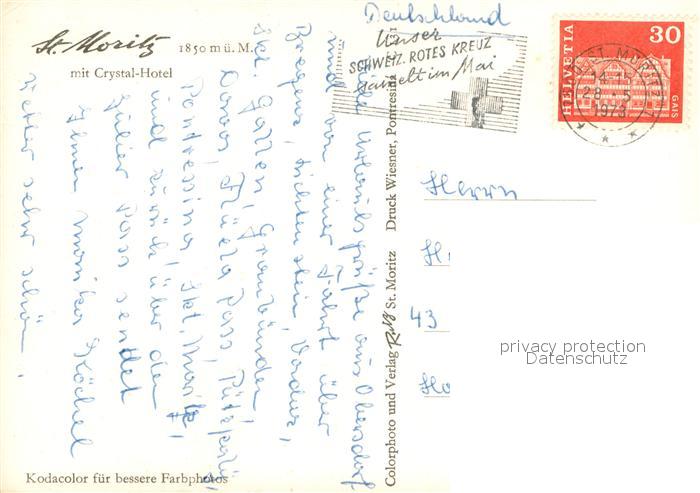 St. Moritz 1850 m ü. M.
mit Crystal-Hotel
Urlaubsgrüße aus Oberstdorf
und von einer Fahrt über
Bregenz, Lichtenstein, Vaduz,
Skt. Gallen, Graubünden,
Davos, Flüela Pass,
Pontresina, Skt. Moritz,
und zurück über den
Julier Pass sendet
Ihnen Monika
Wetter sehr schön.
Kodacolor für bessere Farbphotos
Colorphoto und Verlag Rutz St. Moritz Druck Wiesner, Pontresina
Deutschland
Unser
SCHWEIZ. ROTES KREUZ
sammelt im Mai
HELVETIA
30
GAIS
ST. MORITZ
28. 5.
1973
Herrn
H
43
Ho
privacy protection
Datenschutz